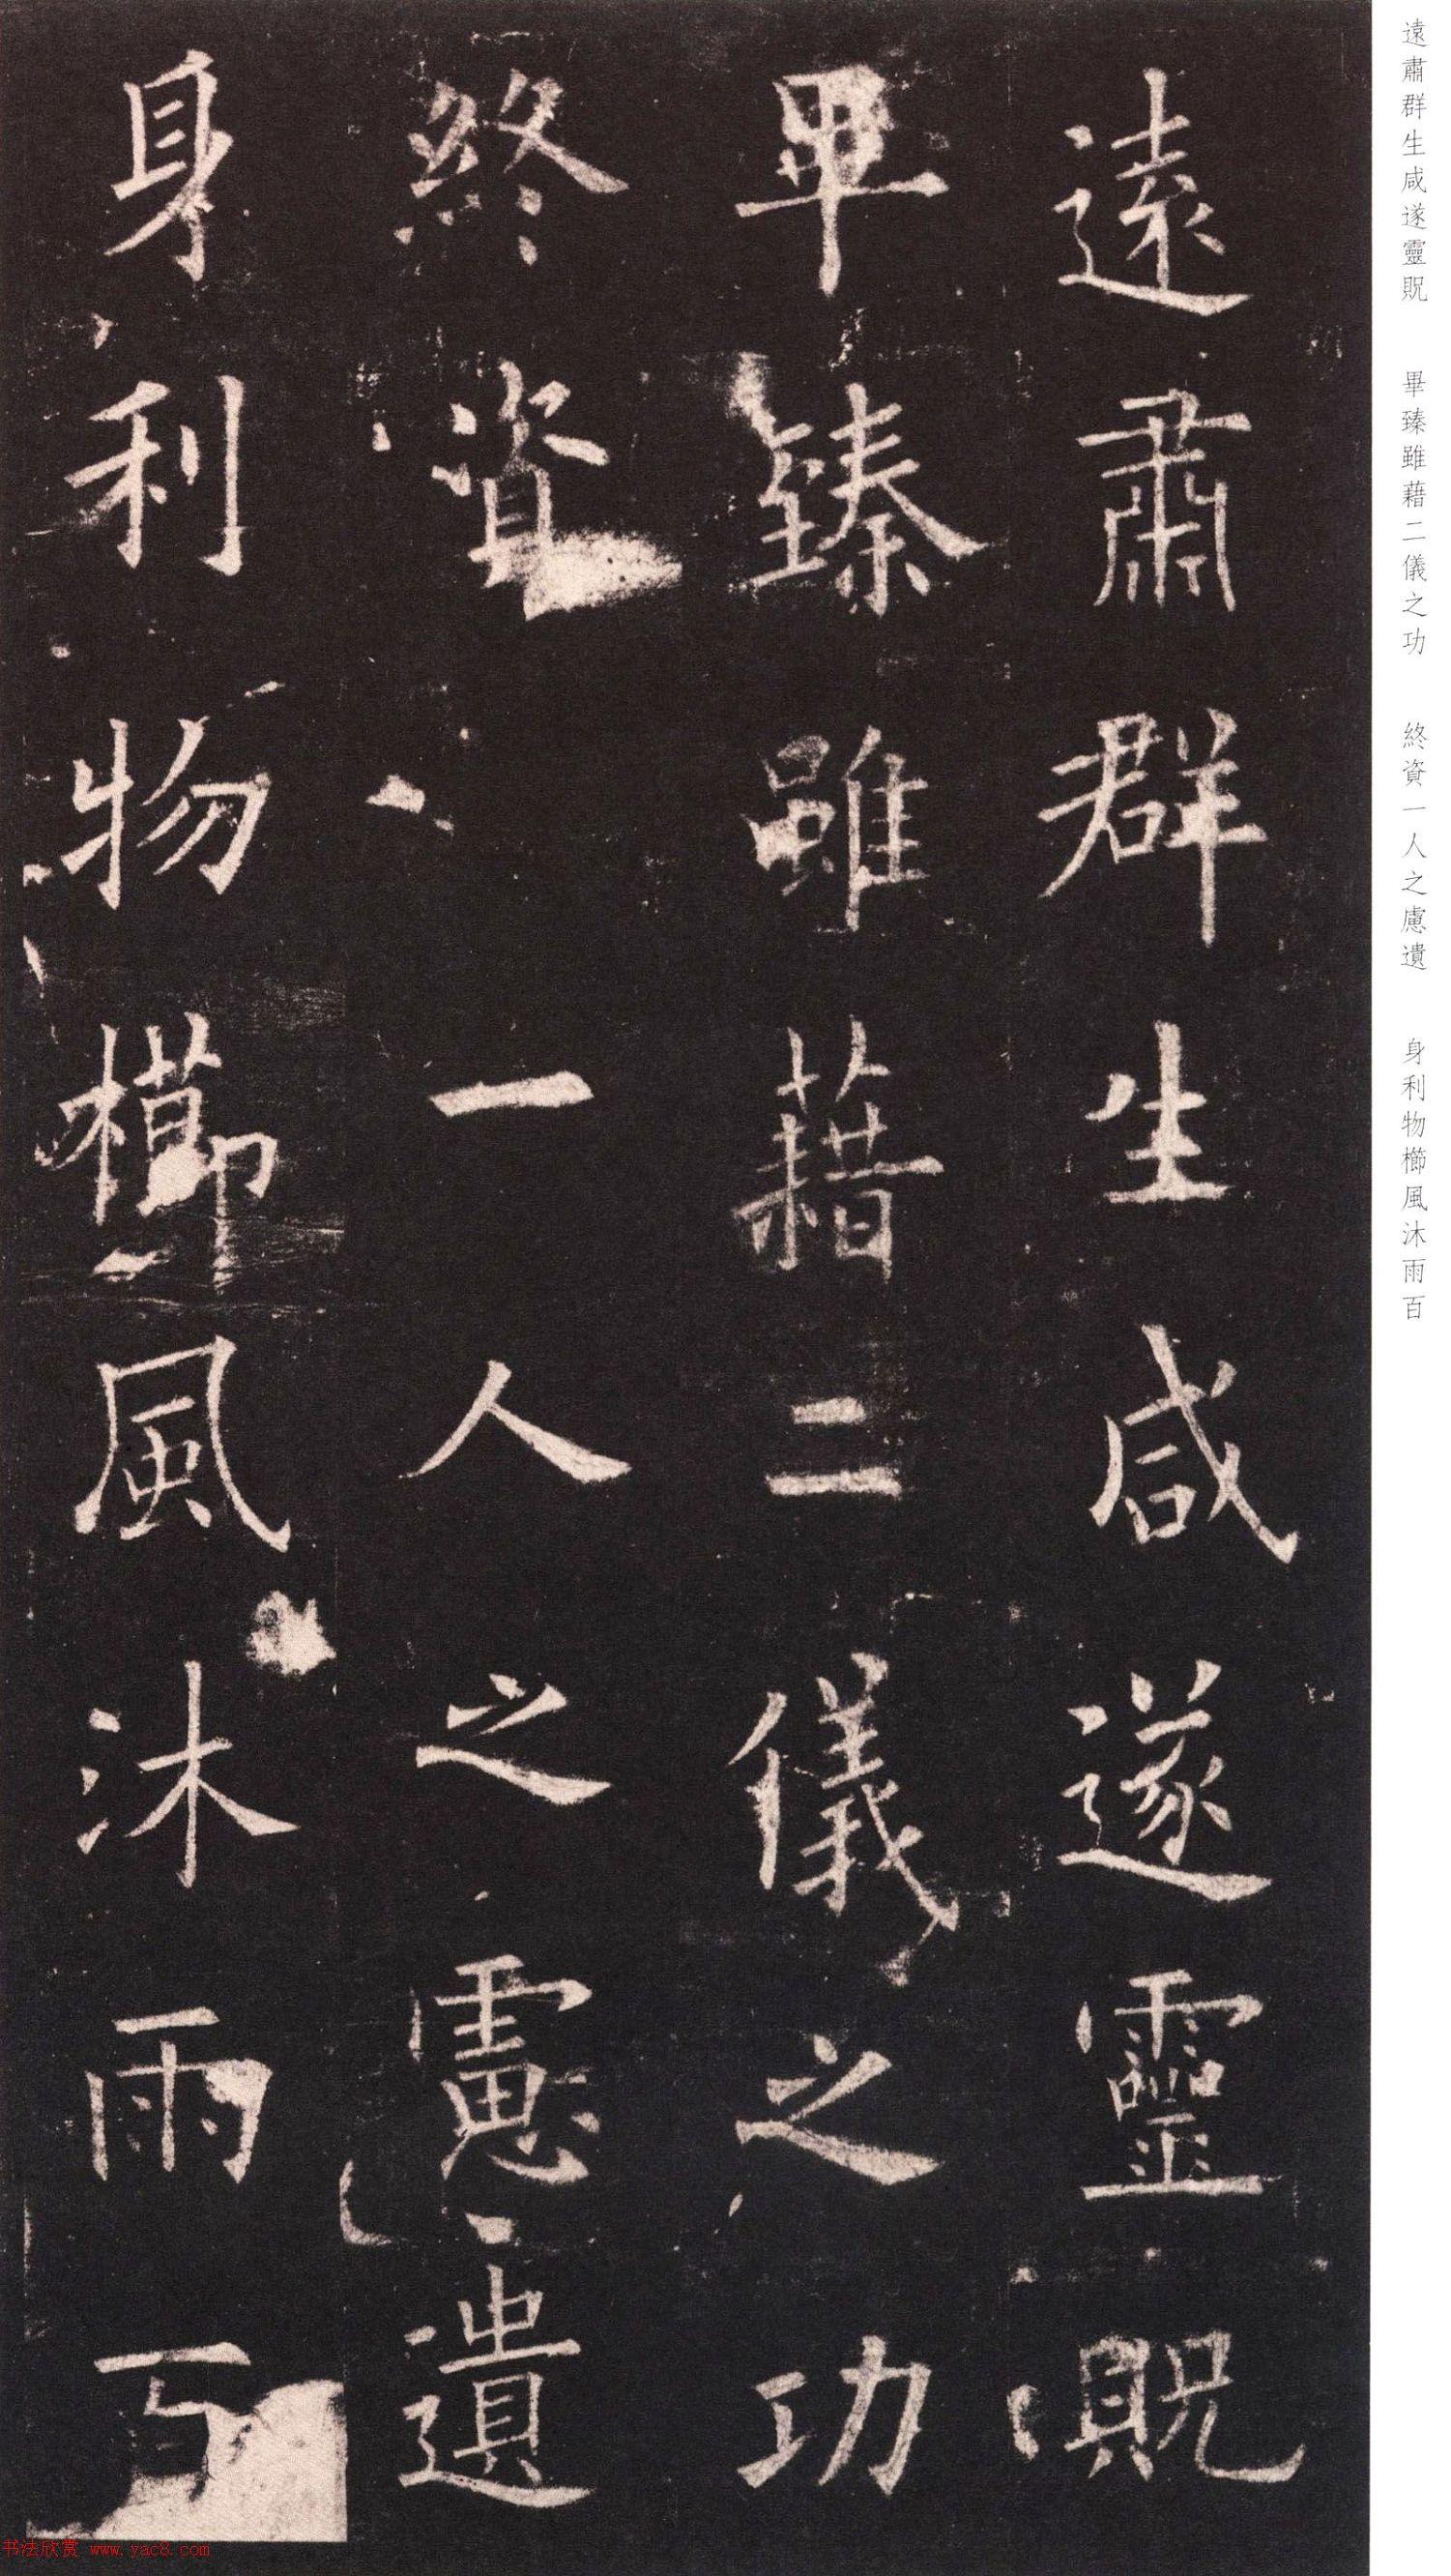 遠肅群生咸遂靈貺
畢臻雖藉二儀之功
終資一人之慮遺
身利物櫛風沐雨百
遠肅群生咸遂靈貺 畢臻雖藉二儀之功 終資一人之慮遺 身利物櫛風沐雨百
书法欣赏 www.yac8.com